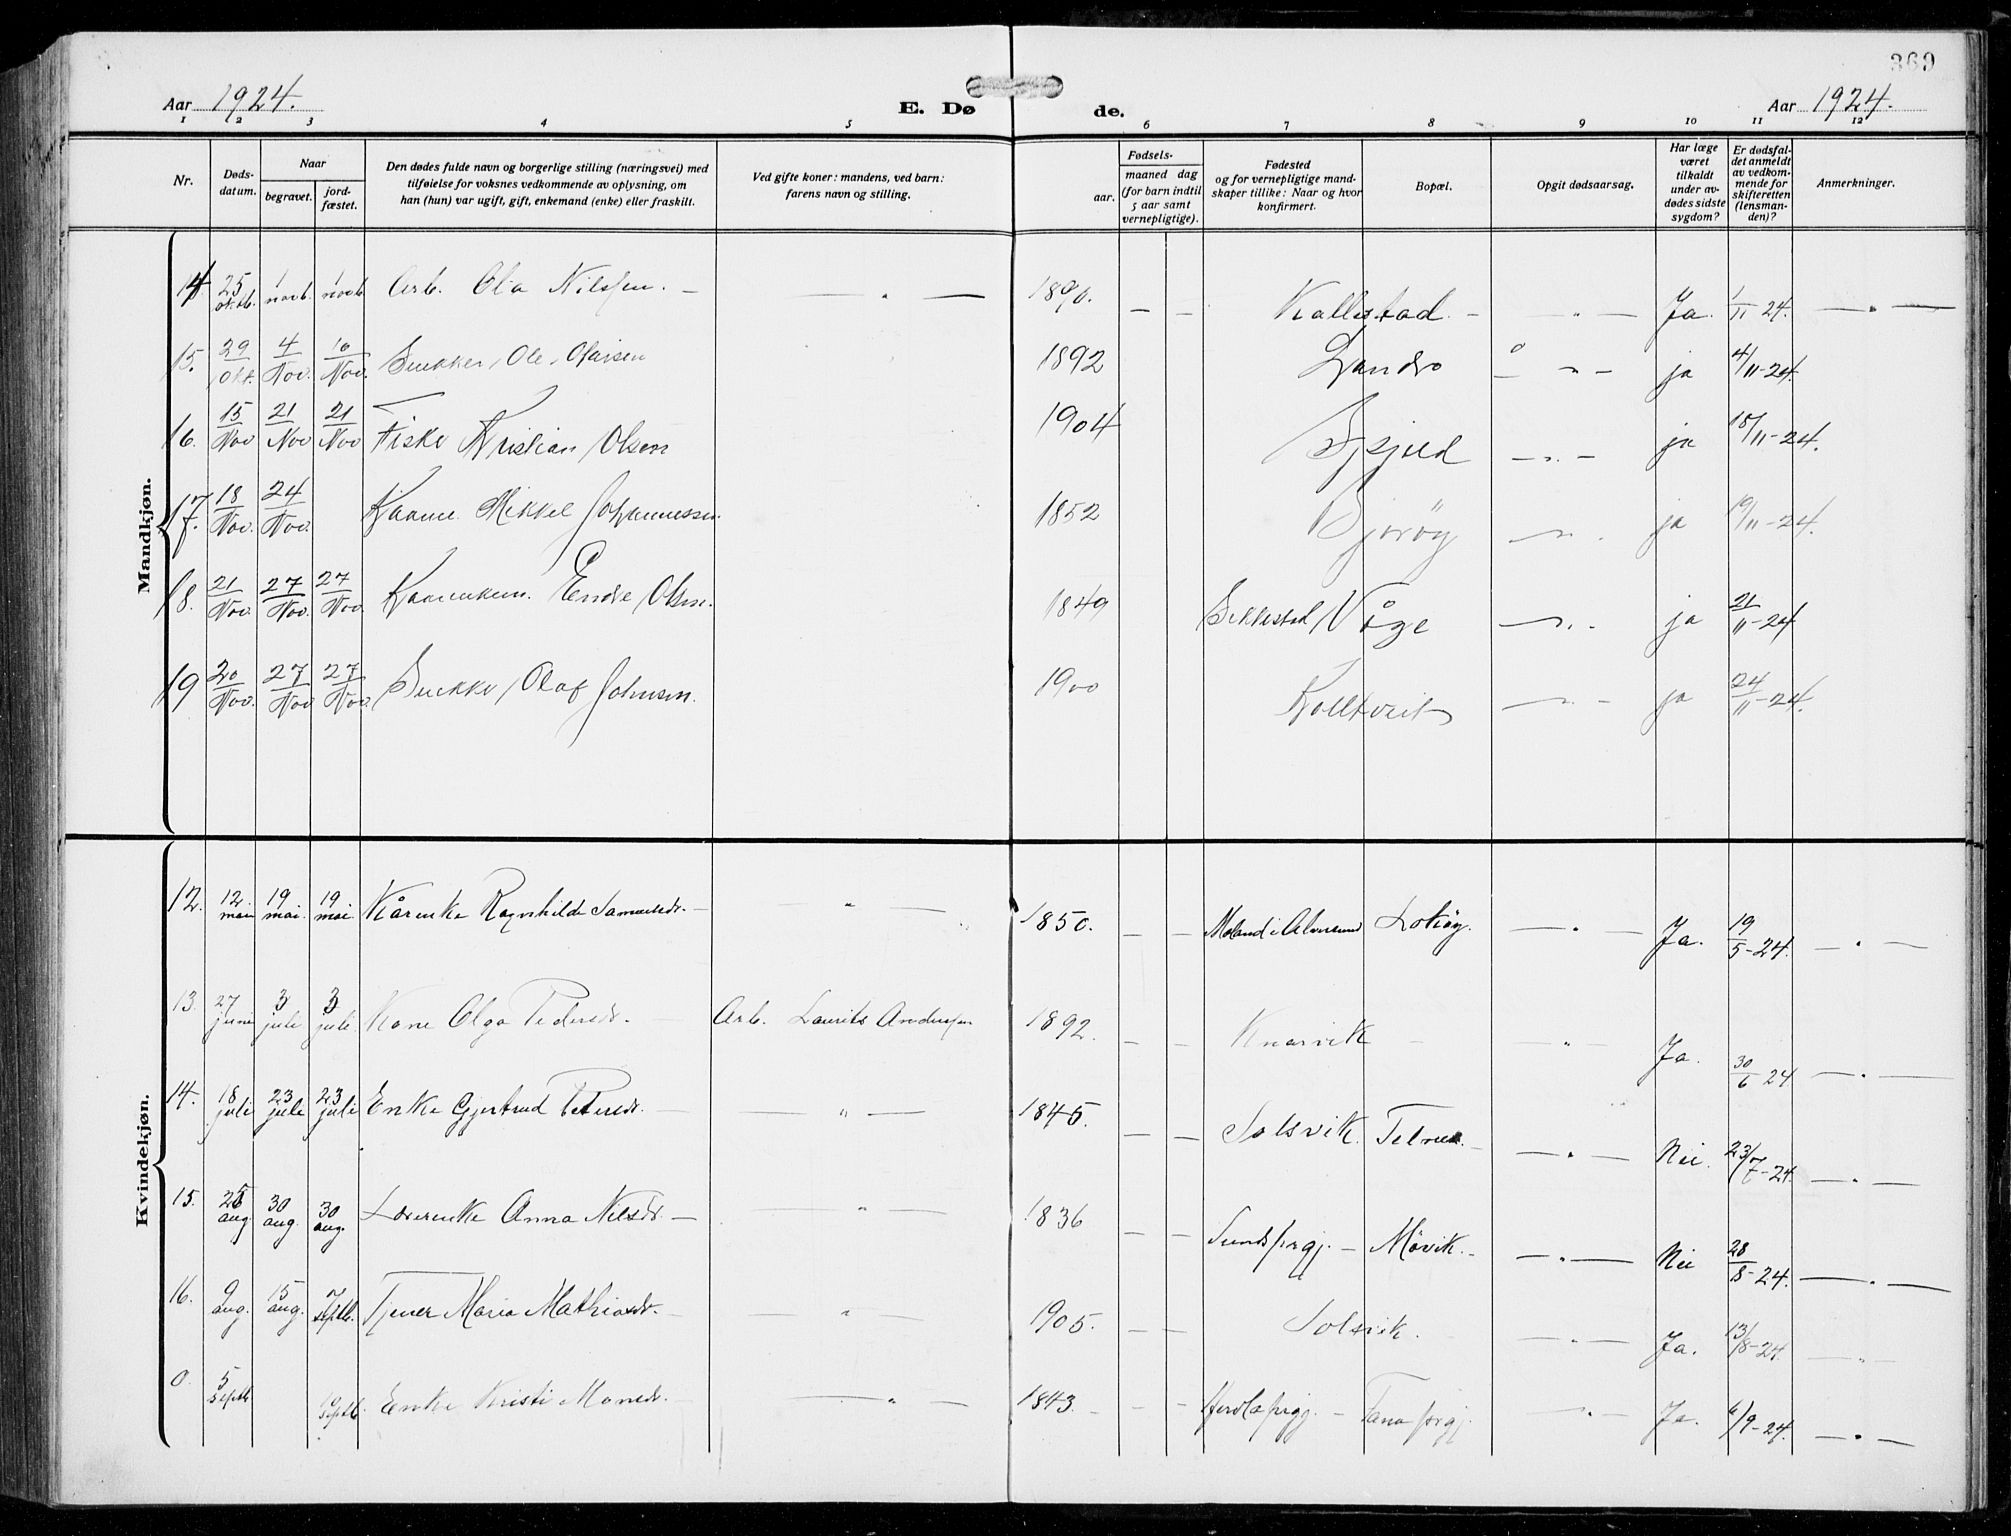 369
Aar 1924. E. Dø de. Aar 1924.
1 2 3 4 5 6 7 8 9 10 11 12
Nr. Døds-datum. Naar begravet. jord-fæstet. Den dødes fulde navn og borgerlige stilling (næringsvei) med tilføielse for voksnes vedkommende av oplysning, om han (hun) var ugift, gift, enkemand (enke) eller fraskilt. Ved gifte koner: mandens, ved barn: farens navn og stilling. Fødsels- aar. maaned dag (for barn indtil 5 aar samt vernepligtige). Fødested og for vernepligtige mand-skaper tillike: Naar og hvor konfirmert. Bopæl. Opgit dødsaarsag. Har læge været tilkaldt under av-dødes sidste sygdom? Er dødsfal-det anmeldt av vedkom-mende for skifteretten (lensman-den)? Anmerkninger.
Mandkjøn.
14 25 oktb. 1 novb. 1 novb. Arb. Ola Nilssen. — — „ — 1890. — — Kallestad. — — „ — Ja. 1/11-24. — „ —
15. 29/Okt. 4/Nov. 10/Nov. Ole Olaisen 1892 Landro — „ — ja 4/11-24.
16. 15/Nov 21/Nov 21/Nov Fiske Kristian Olsen 1904 — „ — ja 18/11-24.
17. 18/Nov. 24/Nov. Kaarm. Mikkel Johannessen 1852 Bjorøy — „ . ja 19/11-24.
18. 21/Nov. 27/Nov. 27/Nov. Kaarenkem. Endre Olsen. 1849 Sekkestad Våge — „ . ja 21/11-24
19 20/Nov. 27/Nov 27/Nov. Olaf Johnsen. 1900 Kolltveit — „ — ja 24/11-24.
Kvindekjøn.
12. 12. mai 19 mai. 19 mai. Kårenke Ragnhilde Samuelsdr. — — „ — 1850. — — Moland i Alversund Lokøy. — „ — Ja. 19/5-24. — „ —
13. 27 juni 3 juli 3 juli. Kone Olga Pedersdr. — Arb. Laurits Anderssen 1892. — — Knarvik — — „ — Ja. 30/6 24 — „ —
14. 18 juli 23 juli 23 juli Enke Gjertrud Petersdr. — — „ — 1845. — — Solsvik. Telnes. — — „ — Nei. 23/7-24. — „ —
15. 25 aug 30 aug. 30 aug. Anna Nilsdr. — — „ — 1836 — — Sundsprgj. — Møvik. — — „ — Nei 28/8-24. — „ —
16. 9 aug. 15 aug. 7 septb. Tjener Maria Mathiasdr. — — „ — 1905. — — Solsvik. — „ — Ja. 13/8-24. — „ —
0. 5 septb septb. Enke Kristi Monsdr. — — „ — 1843. — — — Herdlaprgj. — Fanaprgj. — „ — Ja. 6/9-24. — „ —